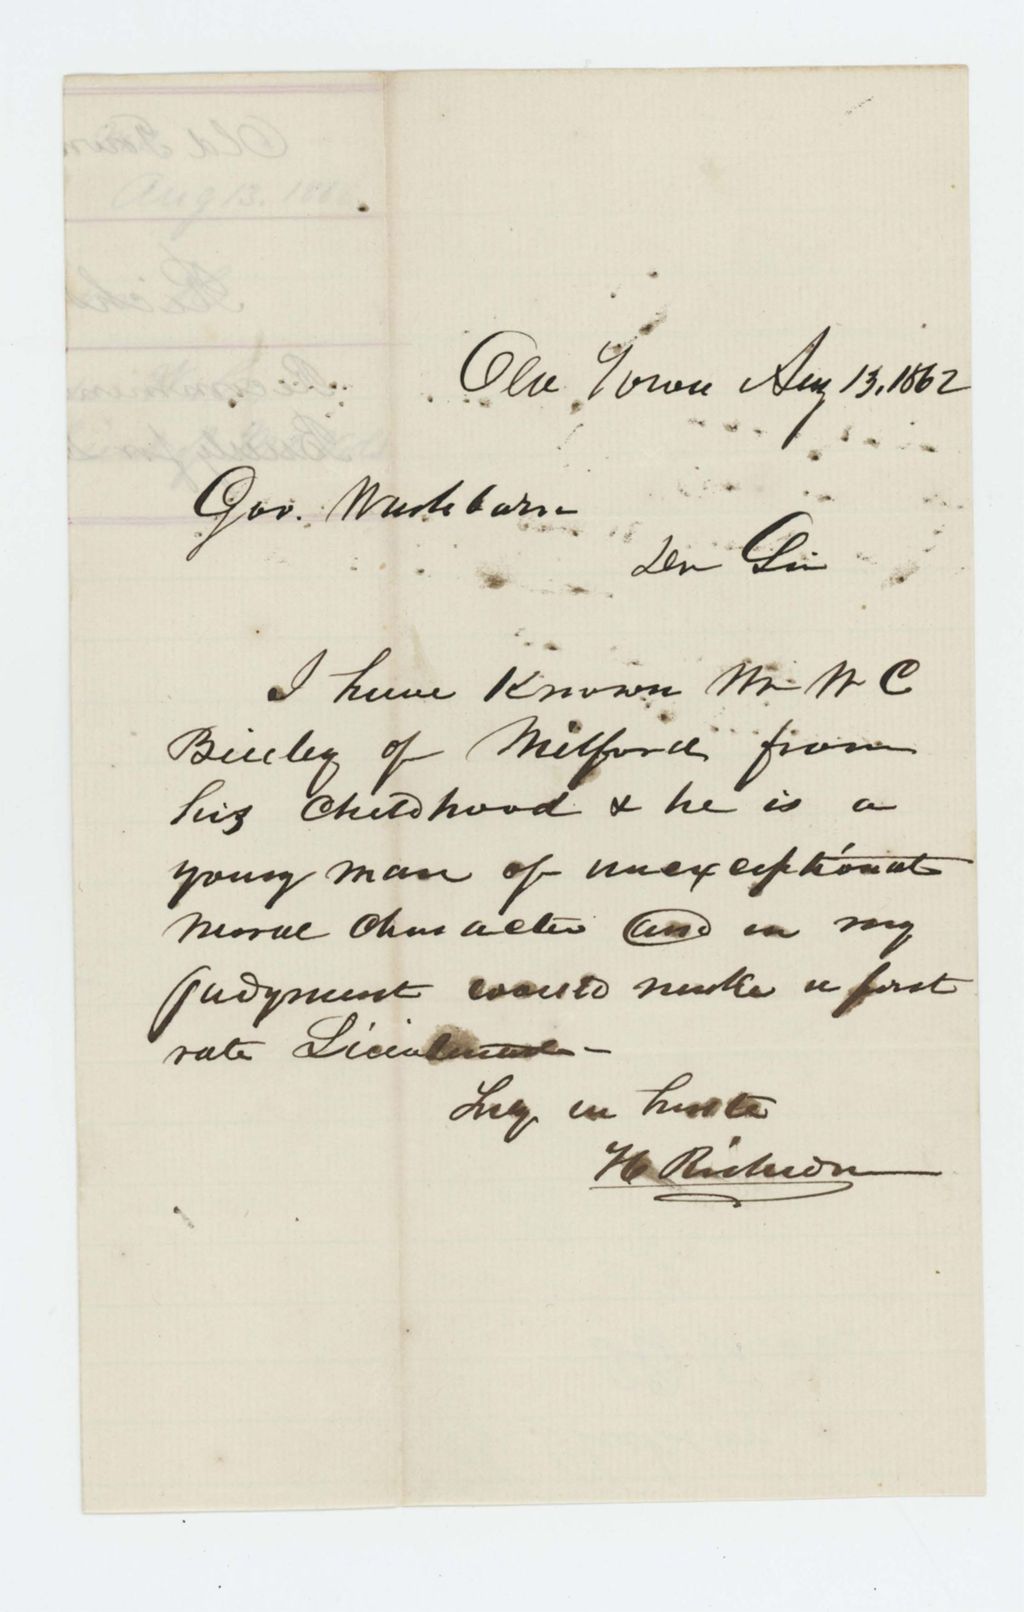 Old Town Aug 13, 1862
Gov. Washburn
Dr Sir
I have Known Mr W C
of Milford from
his Childhood & he is a
young man of unexceptional
moral character and in my
judgment would make a first
rate Lieutenant
in haste
H Richardson
Old Town
Aug 13. 186
Rich
Recommen
for